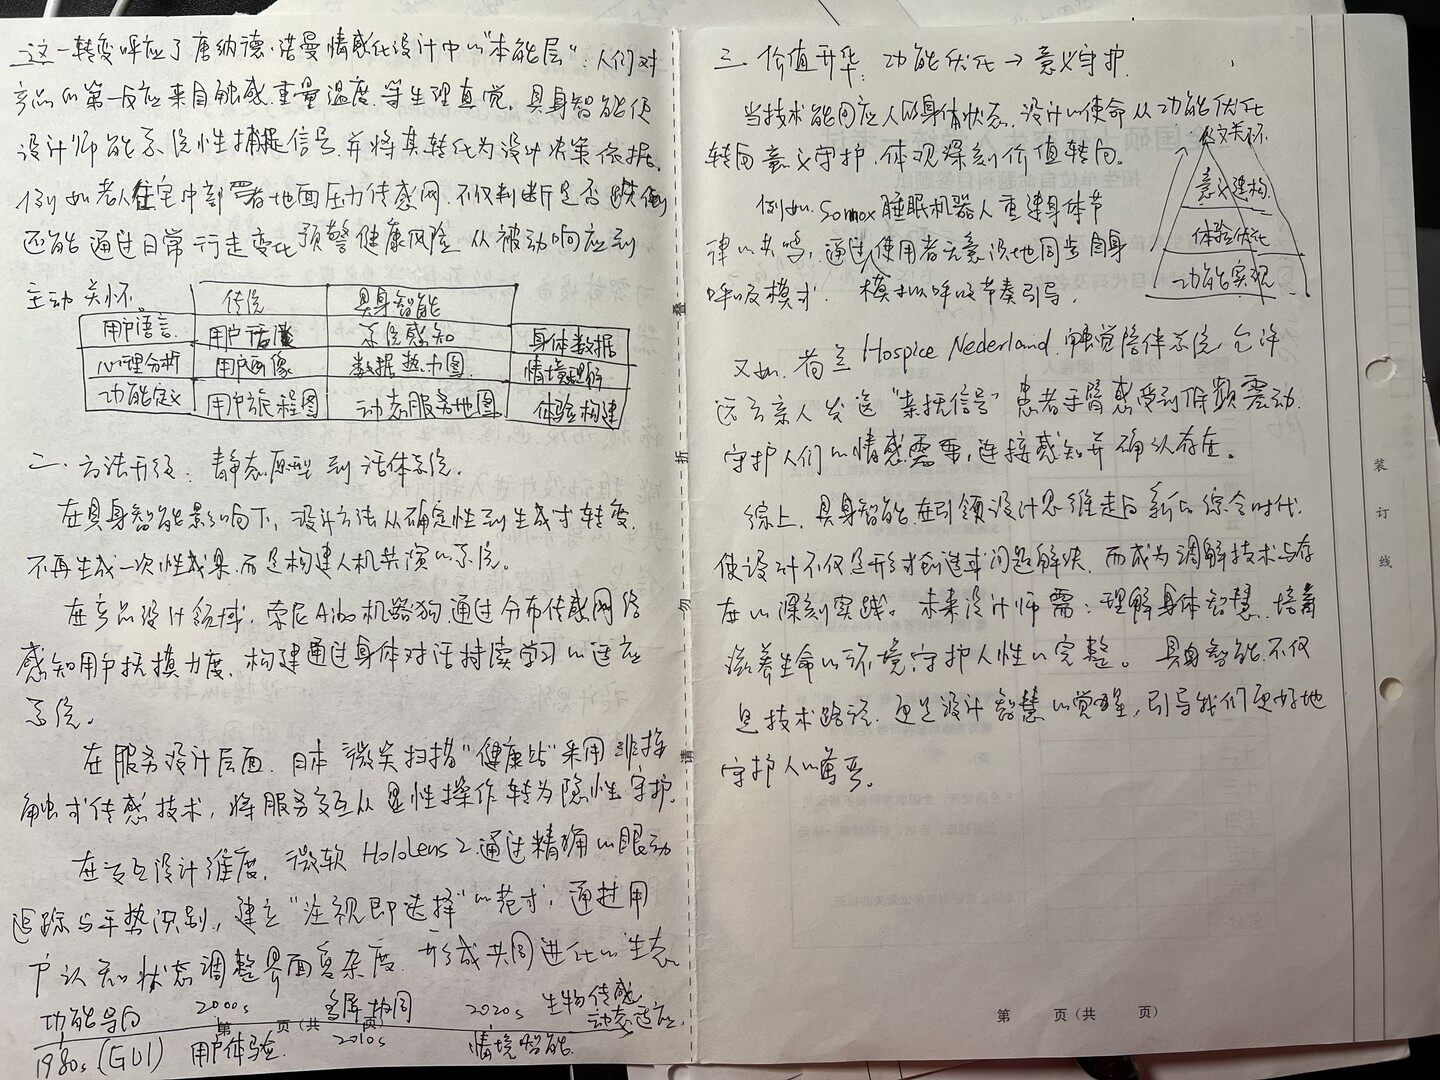 这一转变呼应了唐纳德·诺曼情感化设计中的"本能层"：人们对
产品的第一反应来自触感、重量、温度等生理直觉。具身智能使
设计师能系统性捕捉信号,并将其转化为设计决策依据。
例如老人住宅中部署地面压力传感网,不仅判断是否跌倒
还能通过日常行走变化预警健康风险,从被动响应到
主动关怀。
传统 具身智能
用户语言 用户语言 系统感知 身体数据
心理分析 用户画像 数据热力图 情境理解
功能定义 用户旅程图 动态服务地图 体验构建
二.方法升级:静态原型到活体系统.
在具身智能影响下,设计方法从确定性到生成式转变,
不再生成一次性成果,而是构建人机共演的系统。
在产品设计领域,索尼Aibo机器狗通过分布传感网络
感知用户抚摸力度,构建通过身体对话持续学习的适应
系统。
在服务设计层面,日本微笑扫描"健康站"采用非接
触式传感技术,将服务交互从显性操作转为隐性守护。
在交互设计维度,微软HoloLens 2通过精确的眼动
追踪与手势识别,建立"注视即选择"的范式,通过用
户认知状态调整界面复杂度,形成共同进化的生态。
功能导向 2000s 多屏协同 2020s 生物传感
动态适应.
第 页(共 页)
1980s(GUI) 用户体验 2010s 情境智能.
折 勿 请
三.价值升华:功能优化→意义守护.
当技术能回应人的身体状态,设计的使命从功能优化
转向意义守护,体现深刻价值转向。
例如,Somnox睡眠机器人重建身体节
律的共鸣,通过使用者无意识地同步自身
呼吸模式,模拟呼吸节奏引导.
人文关怀
意义建构
体验优化
功能实现
又如,荷兰Hospice Nederland.触觉陪伴系统,允许
远方亲人发送"亲抚信号"患者手臂感受到低频震动.
守护人们的情感需要,连接感知并确认存在。
综上,具身智能在引领设计思维走向新的综合时代.
使设计不仅是形式创造或问题解决,而成为调解技术与存
在的深刻实践。未来设计师需:理解身体智慧、培育
滋养生命的环境,守护人性的完整。具身智能不仅
是技术路线,更是设计智慧的觉醒,引导我们更好地
守护人的尊严。
装
订
线
第 页(共 页)